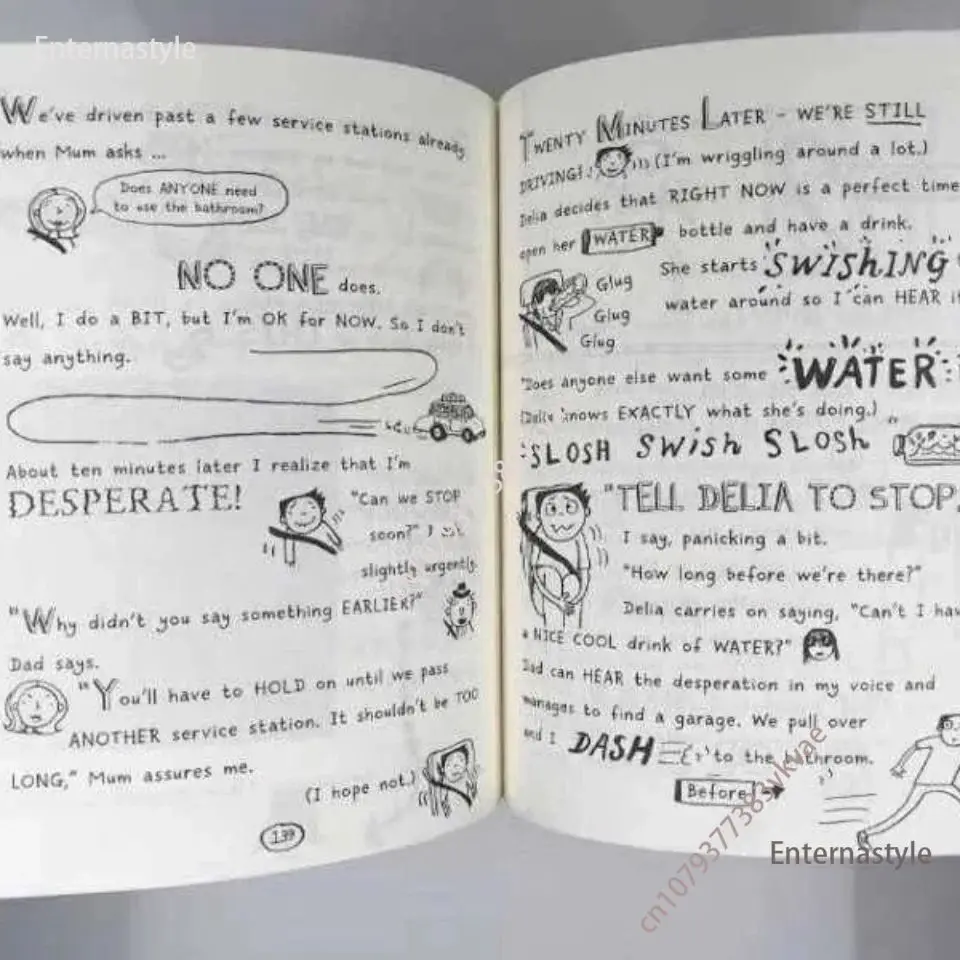 Enternastyle
We've driven past a few service stations already
when Mum asks ...
Does ANYONE need
to use the bathroom?
NO ONE does.
Well, I do a BIT, but I'm OK for NOW. So I don't
say anything.
About ten minutes later I realize that I'm
DESPERATE!
"Can we STOP
soon?" I
slightly urgently.
"Why didn't you say something EARLIER?"
Dad says.
"You'll have to HOLD on until we pass
ANOTHER service station. It shouldn't be TOO
LONG," Mum assures me.
(I hope not.)
139
TWENTY MINUTES LATER - WE'RE STILL
DRIVING! (I'm wriggling around a lot.)
Delia decides that RIGHT NOW is a perfect time
open her WATER bottle and have a drink.
Glug
Glug
Glug
She starts SWISHING
water around so I can HEAR
"Does anyone else want some WATER
(Delia knows EXACTLY what she's doing.)
SLOSH SWISH SLOSH
"TELL DELIA TO STOP,
I say, panicking a bit.
"How long before we're there?"
Delia carries on saying, "Can't I
a NICE COOL drink of WATER?"
Dad can HEAR the desperation in my voice and
manages to find a garage. We pull over
and I DASH to the bathroom.
Before
Enternastyle